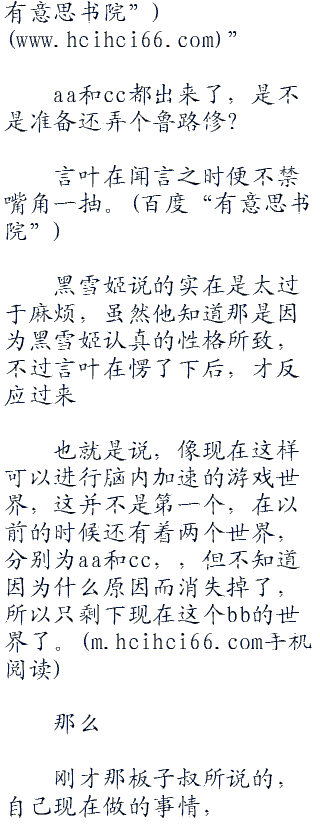 有意思书院”)
(www.hcihci66.com)”
aa和cc都出来了，是不
是准备还弄个鲁路修？
言叶在闻言之时便不禁
嘴角一抽。(百度“有意思书
院”)
黑雪姬说的实在是太过
于麻烦，虽然他知道那是因
为黑雪姬认真的性格所致，
不过言叶在愣了下后，才反
应过来
也就是说，像现在这样
可以进行脑内加速的游戏世
界，这并不是第一个，在以
前的时候还有着两个世界，
分别为aa和cc，，但不知道
因为什么原因而消失掉了，
所以只剩下现在这个bb的世
界了。(m.hcihci66.com手机
阅读)
那么
刚才那板子叔所说的，
自己现在做的事情，